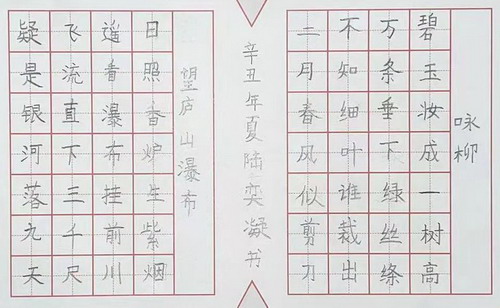 咏柳
碧玉妆成一树高
万条垂下绿丝绦
不知细叶谁裁出
二月春风似剪刀
辛丑年夏陆奕凝书
望庐山瀑布
日照香炉生紫烟
遥看瀑布挂前川
飞流直下三千尺
疑是银河落九天